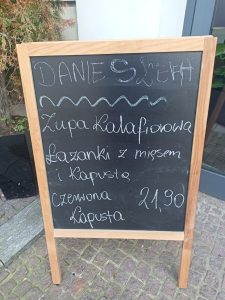 DANIE SZEFA
Zupa Kalafiorowa
Łazanki z mięsem
i Kapustą
Czerwona 21,90
Kapusta